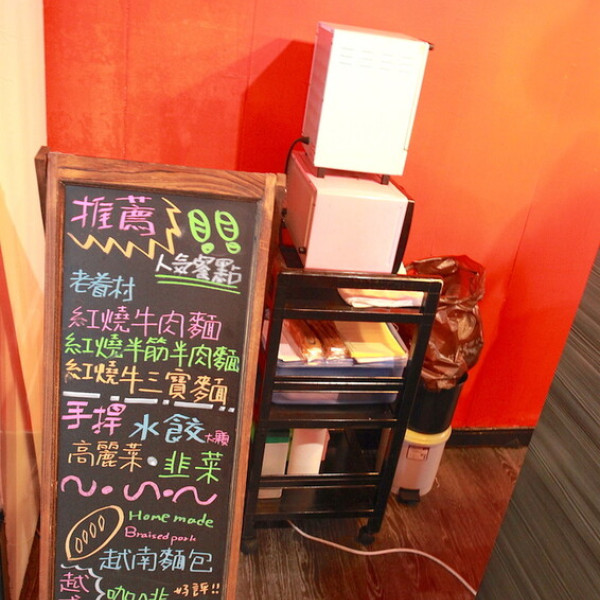 推薦!!
人氣餐點
老眷村
紅燒牛肉麵
紅燒半筋半肉麵
紅燒牛三寶麵
手捍水餃大顆
高麗菜·韭菜
Home made
Braised pork
越南麵包
越
咖啡 好評!!